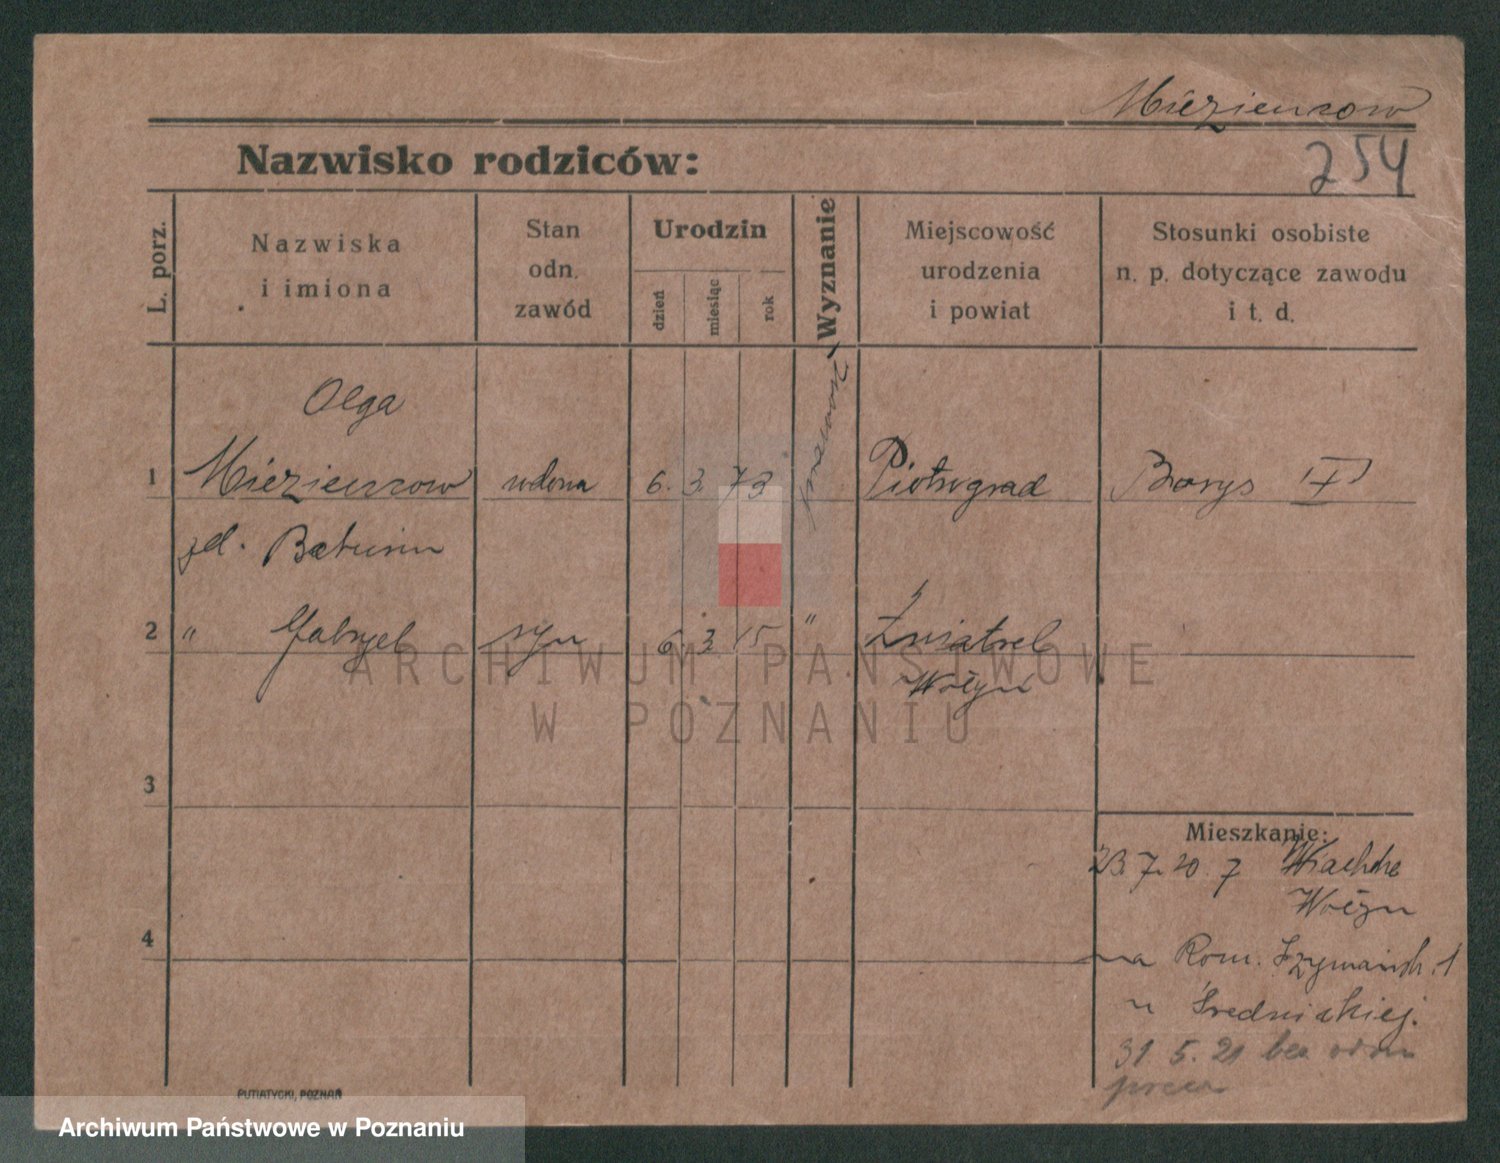 Miezienzow
Nazwisko rodziców:
254
L. porz.
Nazwiska
i imiona
Stan
odn.
zawód
Urodzin
dzień
miesiąc
rok
Wyznanie
Miejscowość
urodzenia
i powiat
Stosunki osobiste
n. p. dotyczące zawodu
i t. d.
Olga
1 Miezienzow wdowa 6. 3. 73 Piotrograd Borys
2 " Gabryel syn 6 3 15 "
Wołyń
3
Mieszkanie:
23. 7. 20. z
Wołyń
4
na Rom. Szymańsk. 1
u Średnickiej.
31. 5. 21 bez
PUTIATYCKI, POZNAŃ
ARCHIWUM PAŃSTWOWE
W POZNANIU
Archiwum Państwowe w Poznaniu